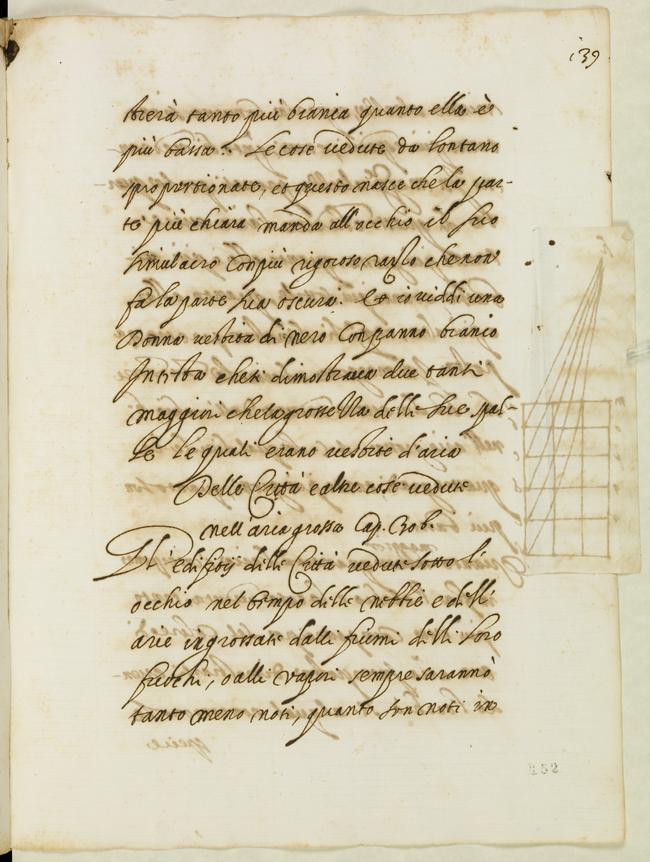 139
trerà tanto più bianca quanto ella è
più bassa. Le cose vedute da lontano
proportionate, et questo nasce che la par-
te più chiara manda all'occhio il suo
simulacro con più vigoroso razzo che non
fa la parte sua oscura. Et io viddi una
Donna vestita di nero con panno bianco
In testa che si dimostrava due tanti
maggiori che la grossezza delle sue spal-
le le quali erano vestite d'aria
Delle Città e altre cose vedute
nell'aria grossa Cap. 306.
Gl'edifitij delle Città vedute sotto l'
occhio nel tempo delle nebbie e dell'
arie ingrossate dalli fiumi delli loro
fuochi, o altri vapori sempre saranno
tanto meno noti, quanto son noti in
252